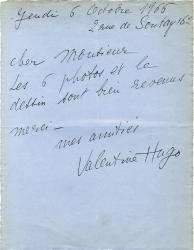 Jeudi 6 Octobre 1966
2 rue de Sontay 16e
Cher Monsieur
Les 6 photos et le
dessin sont bien revenus
merci —
mes amitiés
Valentine Hugo